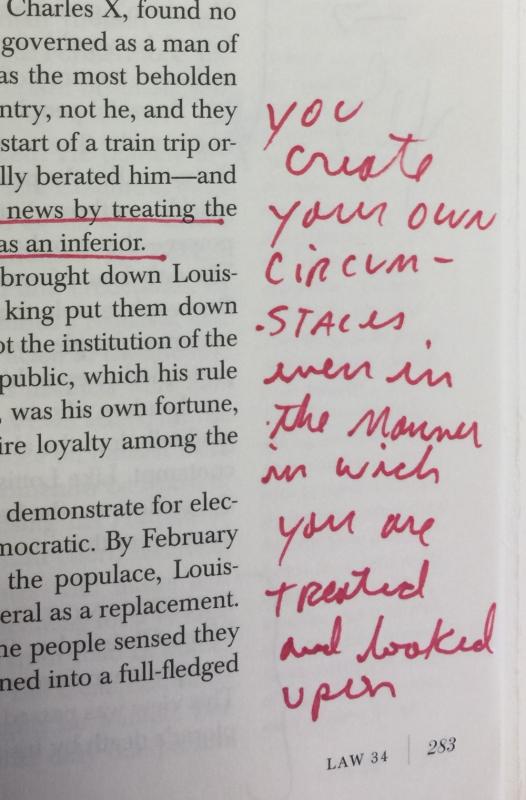 Charles X, found no
governed as a man of
as the most beholden
ntry, not he, and they
start of a train trip or-
lly berated him—and
news by treating the
as an inferior.
brought down Louis-
king put them down
ot the institution of the
public, which his rule
, was his own fortune,
ire loyalty among the
demonstrate for elec-
mocratic. By February
the populace, Louis-
eral as a replacement.
he people sensed they
ned into a full-fledged
you
create
your own
circum-
staces
even in
the manner
in wich
you are
treated
and looked
upon
LAW 34 | 283